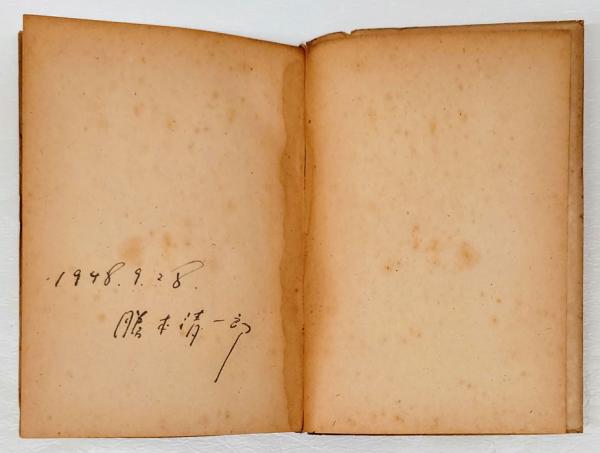 1948.9.28.
勝本清一郎